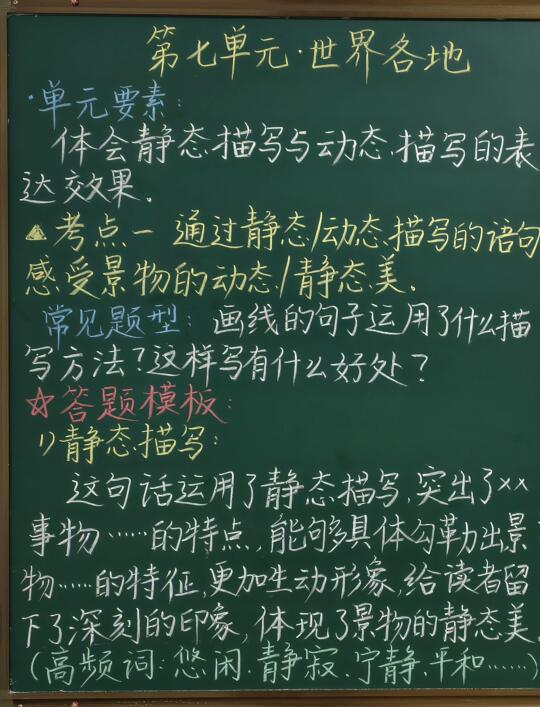 第七单元·世界各地
·单元要素：
体会静态描写与动态描写的表
达效果。
▲考点一 通过静态/动态描写的语句
感受景物的动态/静态美。
常见题型：画线的句子运用了什么描
写方法？这样写有什么好处？
☆答题模板：
1)静态描写：
这句话运用了静态描写，突出了××
事物……的特点，能够具体勾勒出景
物……的特征，更加生动形象，给读者留
下了深刻的印象，体现了景物的静态美。
(高频词：悠闲、静寂、宁静、平和……)